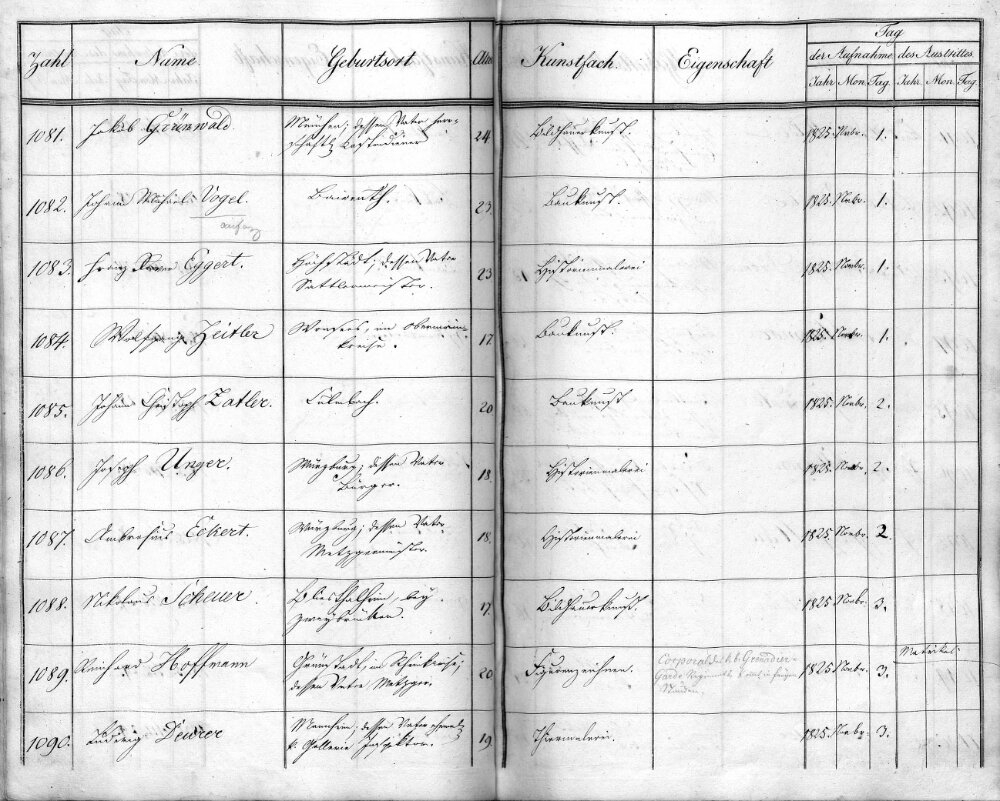 Tag
Zahl Name Geburtsort Alter Kunstfach. Eigenschaft der Aufnahme des Austrittes
Jahr Mon. Tag. Jahr. Mon. Tag
1081. Jakob Grünwald. München; dessen Vater herr-
schaftl. 24 Bildhauerkunst. 1825. Novbr. 1.
1082. Johann Michael Vogel. Baireuth. 23. Baukunst. 1825. Novbr. 1.
1083. Franz Eggert. Höchstedt; dessen Vater
Sattlermeister. 23 Historienmalerei 1825. Novbr. 1.
1084. Wolfgang Zeitler Wonsees, im Obermain-
kreise. 17 Baukunst. 1825. Novbr. 1.
1085. Johann Christoph Zatler. 20 Baukunst 1825. Novbr. 2.
1086. Joseph Unger. Würzburg; dessen Vater
Bürger. 18. Historienmalerei 1825. Novbr. 2.
1087. Ambrosius Eckert. Würzburg; dessen Vater
Metzgermeister. 18. Historienmalerei 1825. Novbr. 2
1088. Nikolaus Scheuer. bey
Zweybrücken. 17 Bildhauerkunst 1825 Novbr. 3.
1089. Reinhard Hoffmann Grünstadt, im Rheinkreise;
dessen Vater Metzger. 20 Figurenzeichnen. Corporal des k. b. Grenadier-
Garde Regiments 1825 Novbr. 3. Matrikel.
1090. Ludwig Deurer Mannheim; dessen Vater
k. Gallerie Inspektor. 19. Thiermalerei. 1825. Novbr. 3.